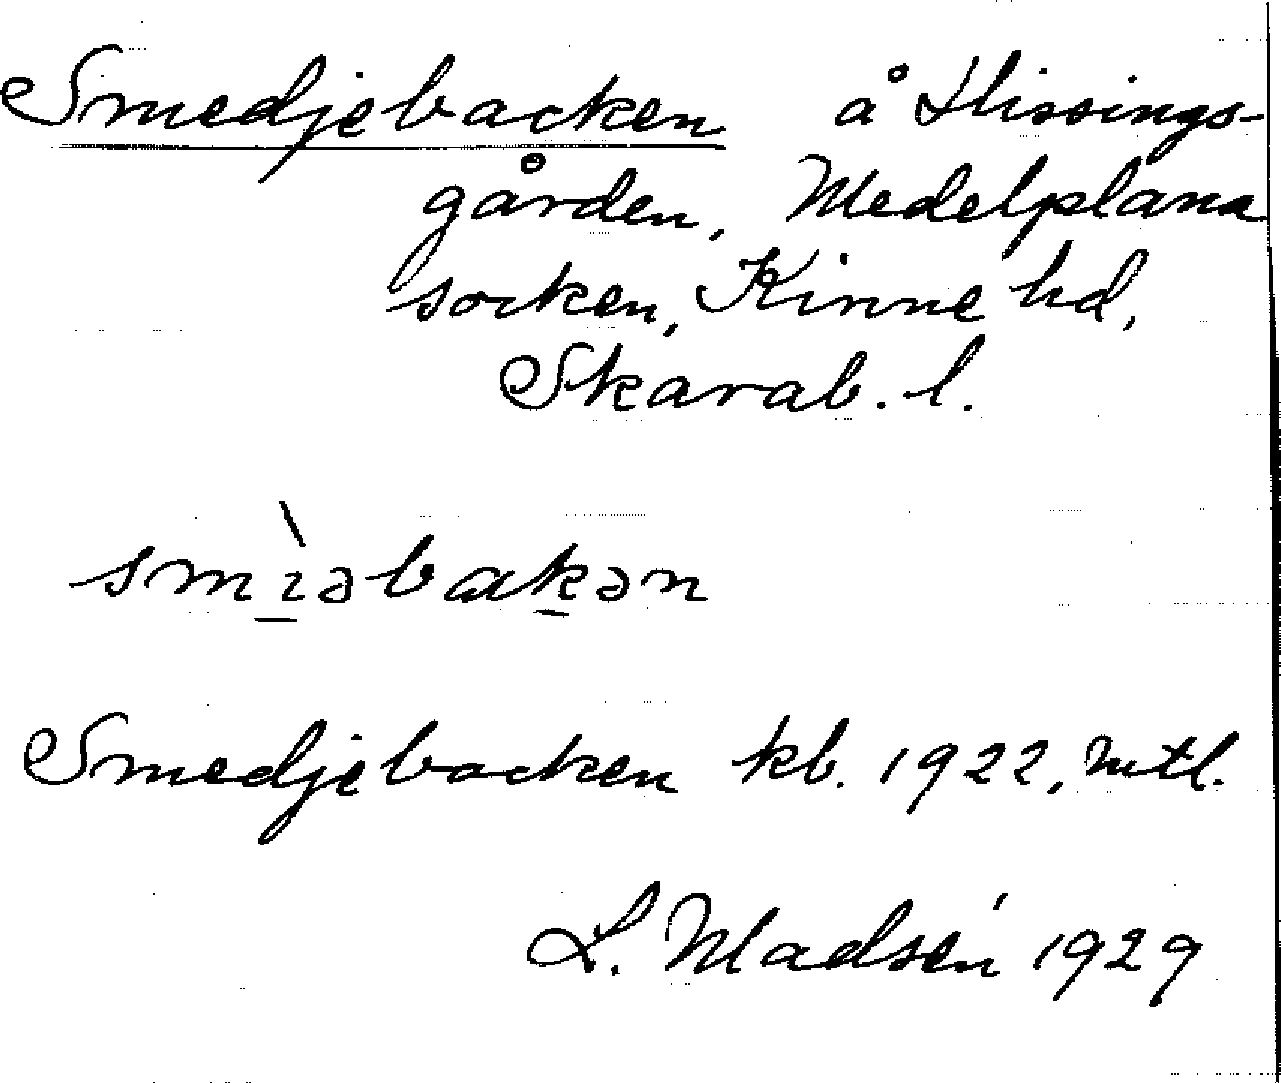 Smedjebacken å Hissings-
gården, Medelplana
socken, Kinne hd,
Skarab. l.
smìəbakən
Smedjebacken kb. 1922, mtl.
L. Madsén 1929